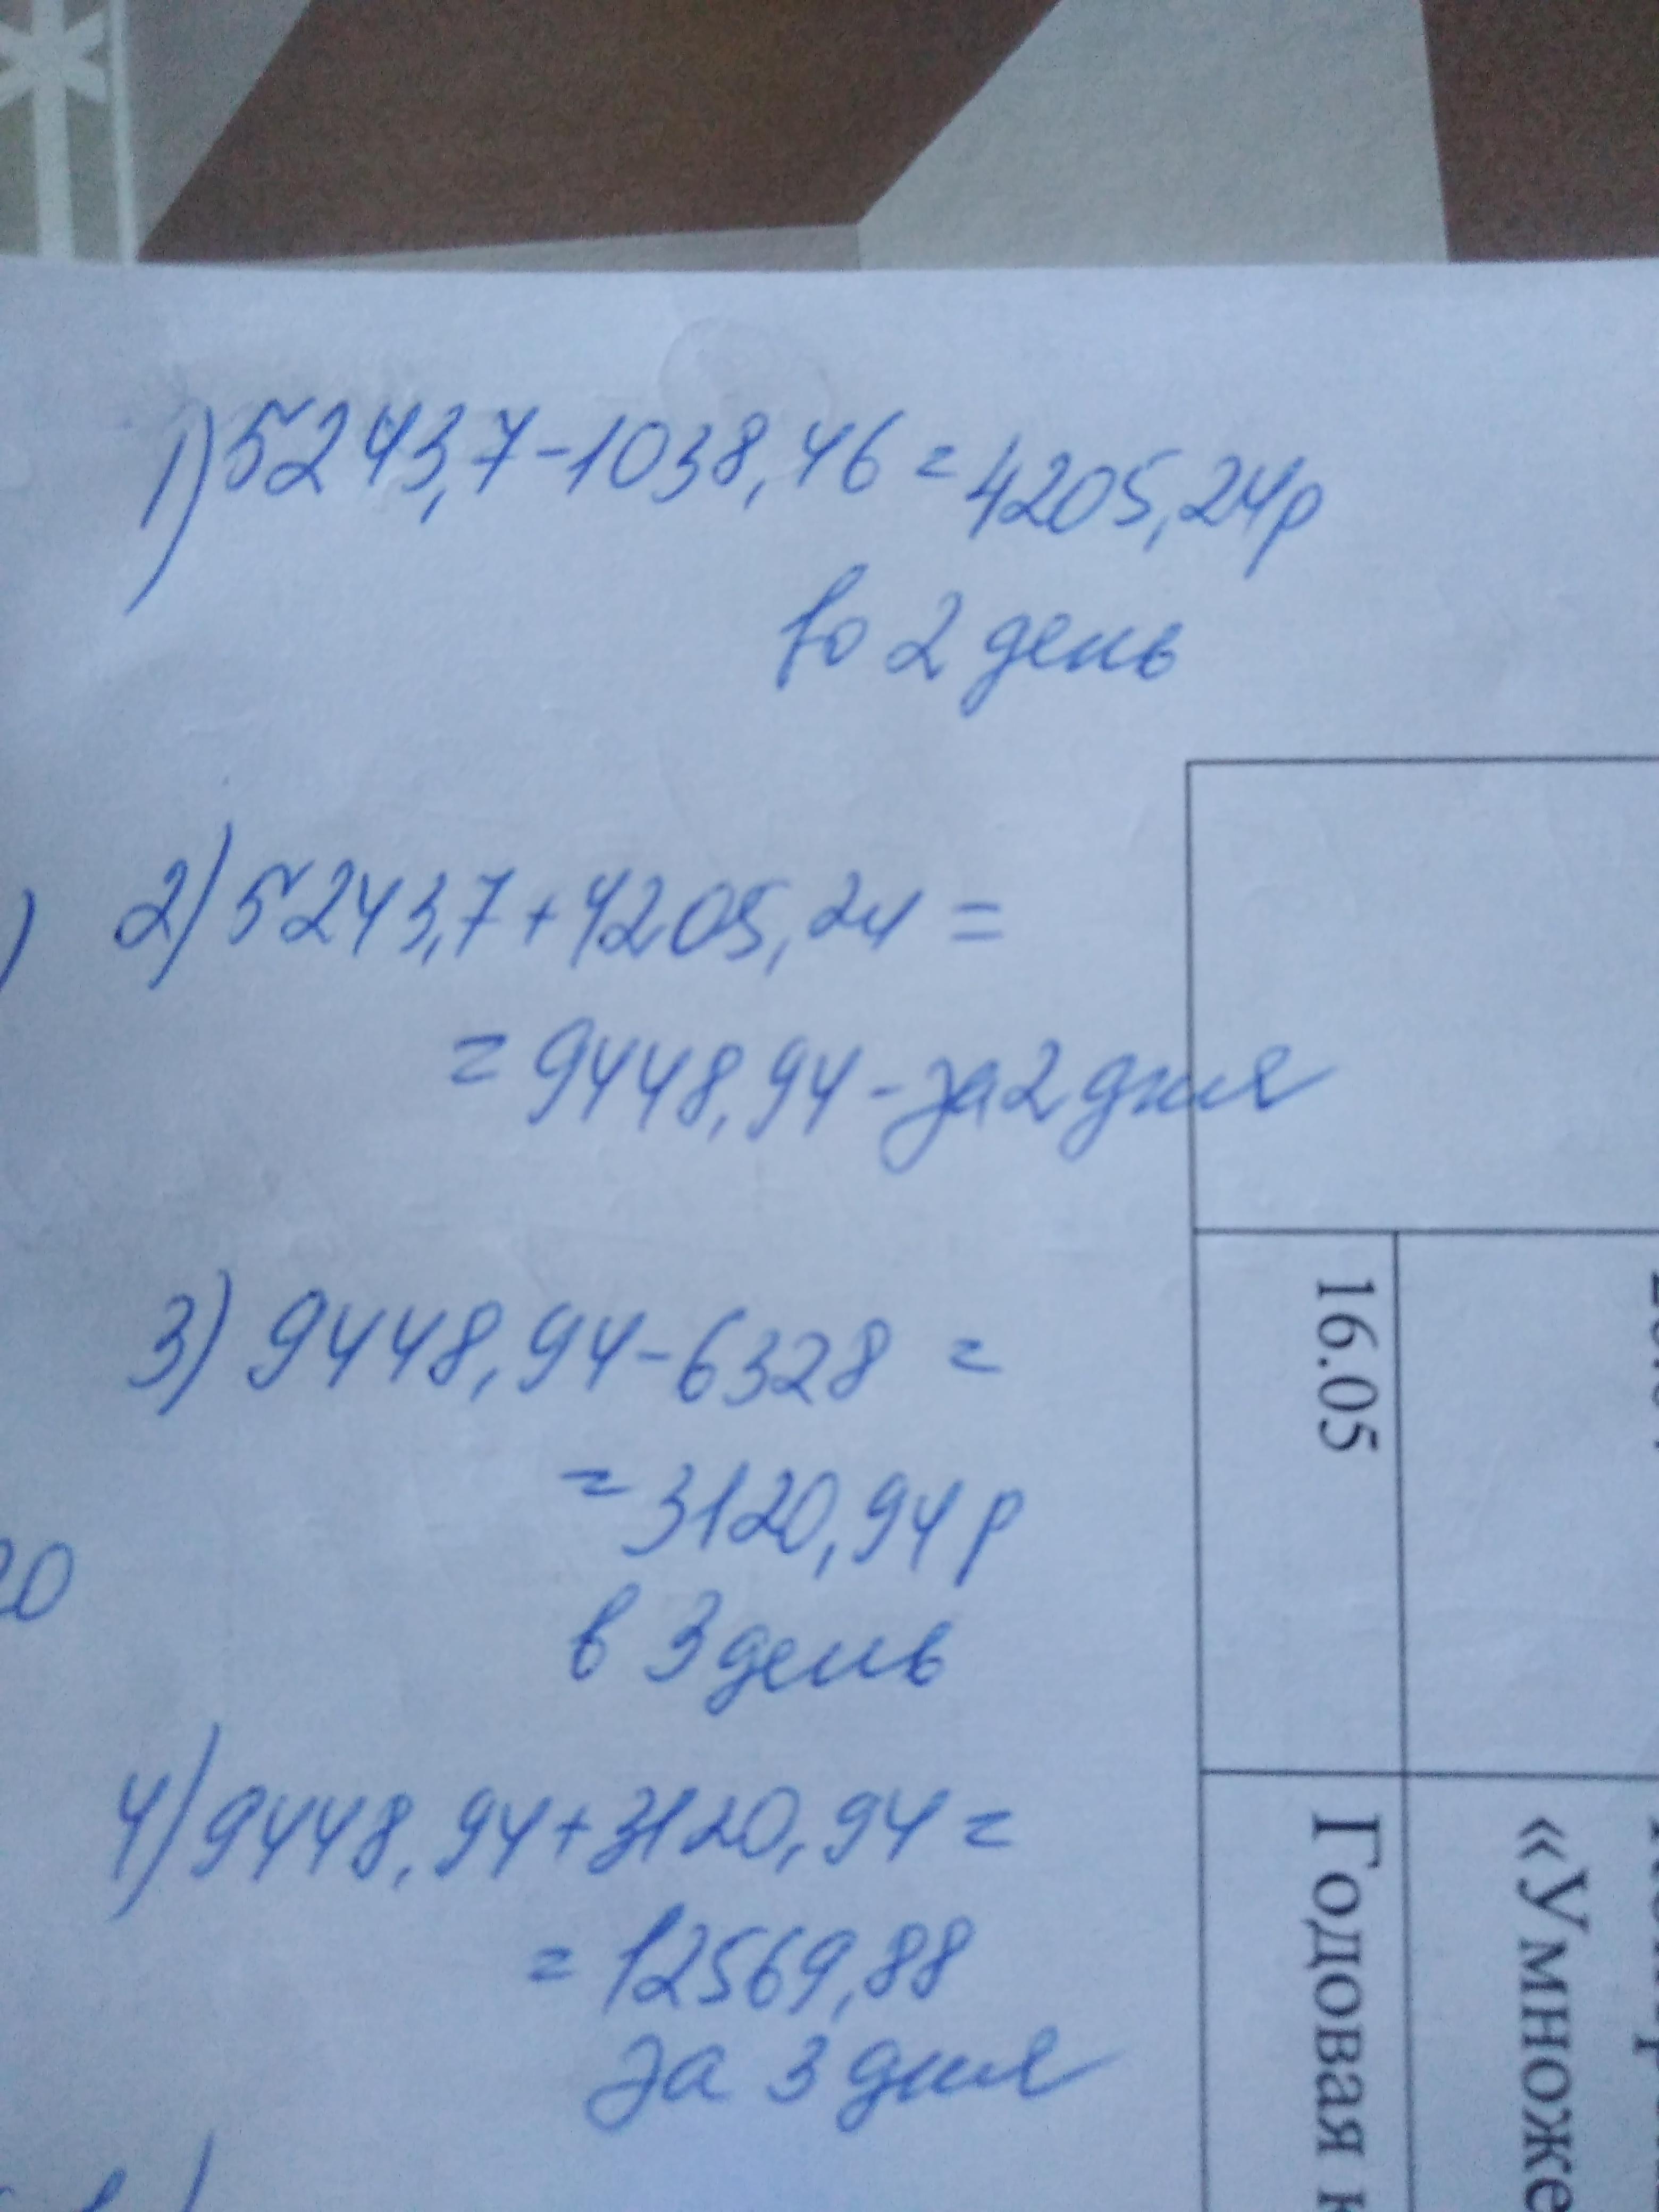 1) 5243,7-1038,46=4205,24р
во 2 день
2) 5243,7+4205,24=
=9448,94-за 2 дня
3) 9448,94-6328=
=3120,94р
в 3 день
4) 9448,94+3120,94=
=12569,88
за 3 дня
)
20
16.05
Годовая к
«Умноже